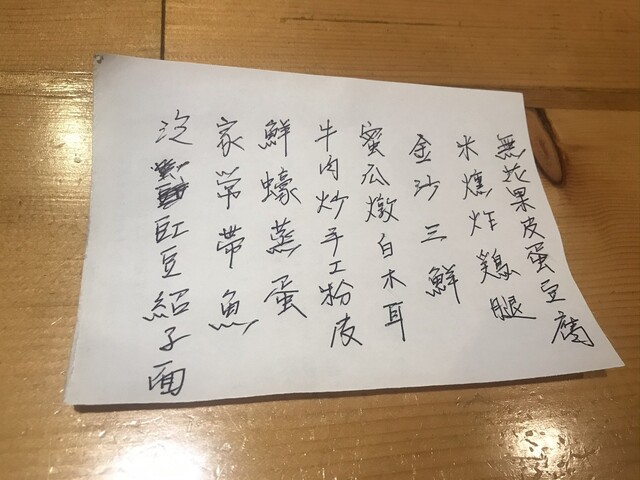 無花果皮蛋豆腐
米燻炸鷄腿
金沙三鮮
蜜瓜燉白木耳
牛肉炒手工粉皮
鮮蠔蒸蛋
家常帶魚
豇豆紹子面